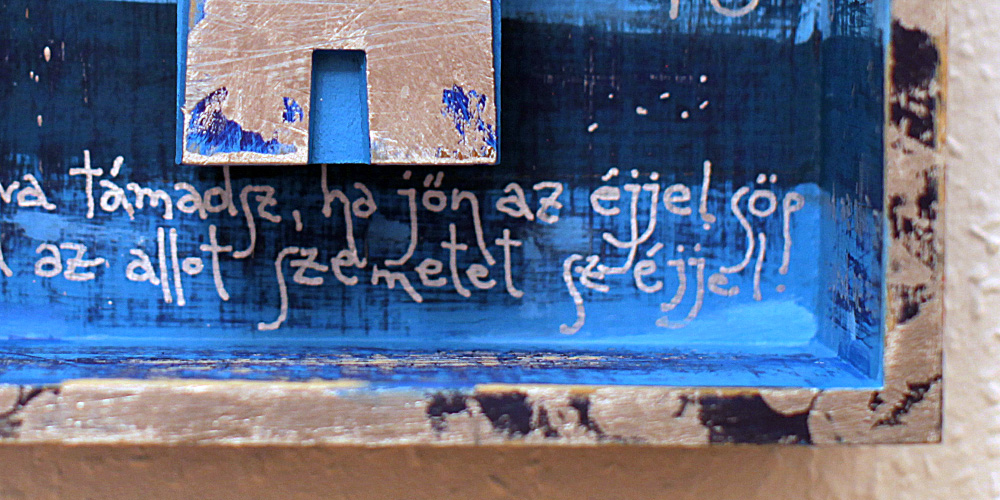 va támadsz, ha jön az éjjel, söp
az állot szemetet széjjel.